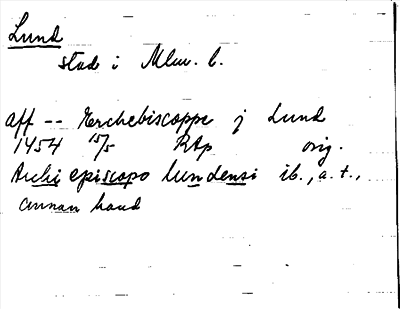 Lund
stad i Mlm. l.
aff -- Erchebiscoppe j Lund
1454 15/5 RAp orig.
Archiepiscopo lundensi ib., a. t.,
annan hand